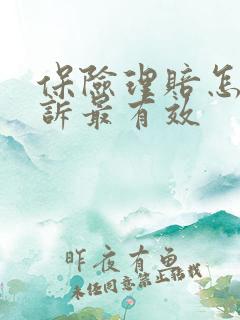 保險理賠怎
訴最有效
昨夜有魚
未经同意禁止转载